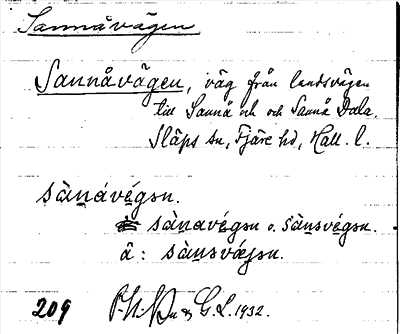 Sannåvägen
Sannåvägen, väg från landsvägen
till Sannå och Sannå Dala.
Släps sn, Fjäre hd, Hall. l.
sànåvégən.
sànavégən o. sànsvégən.
å: sànsvǽgən.
209 G.L. 1932.